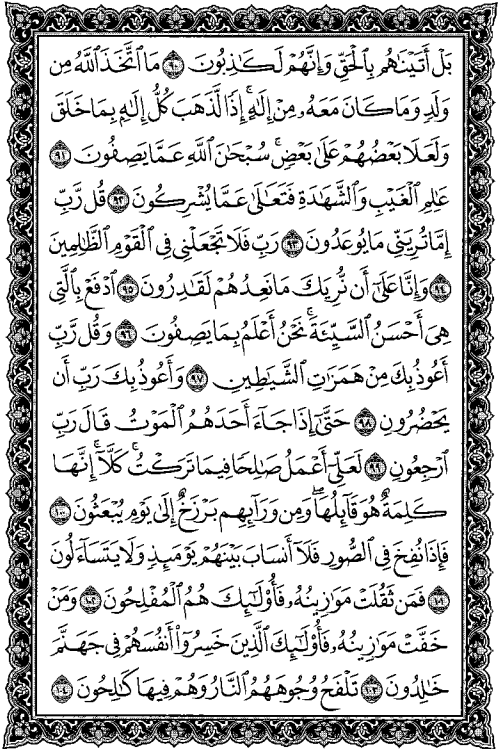 بَلْ أَتَيْنَاهُم بِالْحَقِّ وَإِنَّهُمْ لَكَاذِبُونَ ٩٠ مَا اتَّخَذَ اللَّهُ مِن
وَلَدٍ وَمَا كَانَ مَعَهُ مِنْ إِلَٰهٍ ۚ إِذًا لَّذَهَبَ كُلُّ إِلَٰهٍ بِمَا خَلَقَ
وَلَعَلَا بَعْضُهُمْ عَلَىٰ بَعْضٍ ۚ سُبْحَانَ اللَّهِ عَمَّا يَصِفُونَ ٩١
عَالِمِ الْغَيْبِ وَالشَّهَادَةِ فَتَعَالَىٰ عَمَّا يُشْرِكُونَ ٩٢ قُل رَّبِّ
إِمَّا تُرِيَنِّي مَا يُوعَدُونَ ٩٣ رَبِّ فَلَا تَجْعَلْنِي فِي الْقَوْمِ الظَّالِمِينَ
٩٤ وَإِنَّا عَلَىٰ أَن نُّرِيَكَ مَا نَعِدُهُمْ لَقَادِرُونَ ٩٥ ادْفَعْ بِالَّتِي
هِيَ أَحْسَنُ السَّيِّئَةَ ۚ نَحْنُ أَعْلَمُ بِمَا يَصِفُونَ ٩٦ وَقُل رَّبِّ
أَعُوذُ بِكَ مِنْ هَمَزَاتِ الشَّيَاطِينِ ٩٧ وَأَعُوذُ بِكَ رَبِّ أَن
يَحْضُرُونِ ٩٨ حَتَّىٰ إِذَا جَاءَ أَحَدَهُمُ الْمَوْتُ قَالَ رَبِّ
ارْجِعُونِ ٩٩ لَعَلِّي أَعْمَلُ صَالِحًا فِيمَا تَرَكْتُ ۚ كَلَّا ۚ إِنَّهَا
كَلِمَةٌ هُوَ قَائِلُهَا ۖ وَمِن وَرَائِهِم بَرْزَخٌ إِلَىٰ يَوْمِ يُبْعَثُونَ ١٠٠
فَإِذَا نُفِخَ فِي الصُّورِ فَلَا أَنسَابَ بَيْنَهُمْ يَوْمَئِذٍ وَلَا يَتَسَاءَلُونَ
١٠١ فَمَن ثَقُلَتْ مَوَازِينُهُ فَأُولَٰئِكَ هُمُ الْمُفْلِحُونَ ١٠٢ وَمَنْ
خَفَّتْ مَوَازِينُهُ فَأُولَٰئِكَ الَّذِينَ خَسِرُوا أَنفُسَهُمْ فِي جَهَنَّمَ
خَالِدُونَ ١٠٣ تَلْفَحُ وُجُوهَهُمُ النَّارُ وَهُمْ فِيهَا كَالِحُونَ ١٠٤